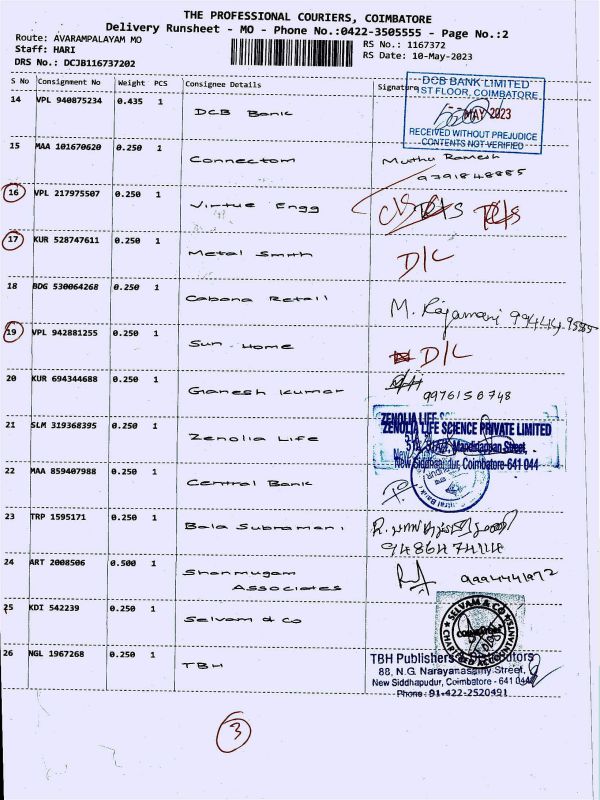 THE PROFESSIONAL COURIERS, COIMBATORE
Delivery Runsheet - MO - Phone No.:0422-3505555 - Page No.:2
Route: AVARAMPALAYAM MO
Staff: HARI
DRS No.: DCJB116737202
RS No.: 1167372
RS Date: 10-May-2023
S No Consignment No Weight PCS Consignee Details Signature
14 VPL 940875234 0.435 1 DCB Bank
DCB BANK LIMITED
1ST FLOOR, COIMBATORE
MAY 2023
RECEIVED WITHOUT PREJUDICE
CONTENTS NOT VERIFIED
15 MAA 101670620 0.250 1 Connectom Muthu Ramesh
9791848885
16 VPL 217975507 0.250 1 Virtue Engg
17 KUR 528747611 0.250 1 Metal Smith D/L
18 BDG 530064268 0.250 1 Cabana Retail M. Rajamani
19 VPL 942881255 0.250 1 Sun Home D/L
20 KUR 694344688 0.250 1 Ganesh Kumar 9976150748
21 SLM 319368395 0.250 1 Zenolia Life
ZENOLIA LIFE SCIENCE PRIVATE LIMITED
Street,
New Siddhapudur, Coimbatore-641 044
22 MAA 859407988 0.250 1 Central Bank
23 TRP 1595171 0.250 1 Bala Subramani
24 ART 2008506 0.500 1 Shanmugam
Associates
25 KDI 542239 0.250 1 Selvam & Co
SELVAM & CO
CHARTERED ACCOUNTANTS
26 NGL 1967268 0.250 1 TBH
TBH Publishers & Distributors
88, N.G. Narayanasamy Street,
New Siddhapudur, Coimbatore - 641 044
Phone : 91-422-2520491
3